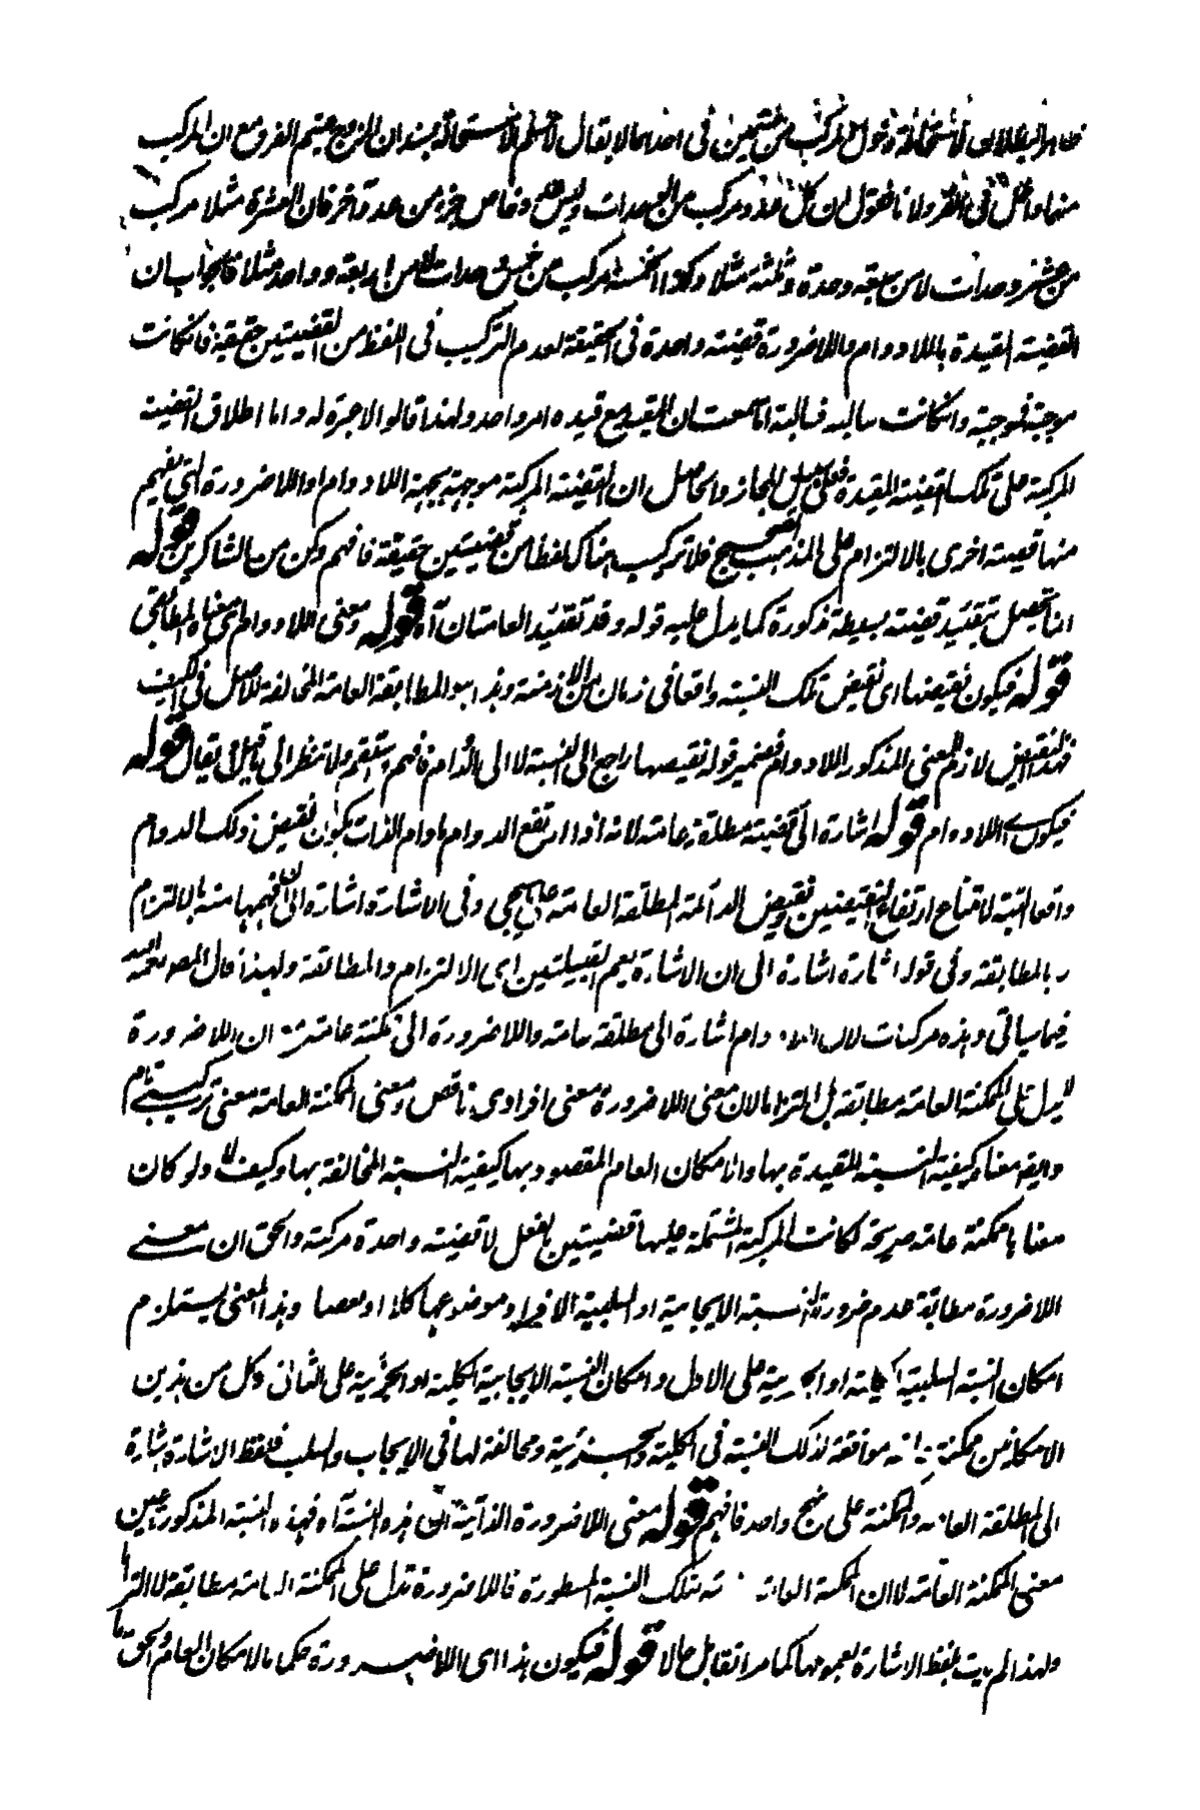 ظاهر البطلان لاستحالة دخول المركب من شيئين في احدهما لا يقال لا نسلم الاستحالة بسند ان المزج عينهم الفرق مع ان المركب
منهما داخل في ولا نا نقول ان كل عدد مركب من الوحدات وليس عدد خاص جزء من عدد آخر فان العشرة مثلا مركب
من عشر وحدات لا من سبعة وحدة وثلثة مثلا وكذا الخمسة مركب من خمس وحدات لا من اربعة وواحد مثلا فالجواب ان
القضية المقيدة باللادوام واللاضرورة قضية واحدة في الحقيقة لعدم التركيب في اللفظ من القضيتين حقيقة فان كانت
موجبة فموجبة وان كانت سالبة فسالبة اما سمعت ان المقيد مع قيده امر واحد ولهذا قالوا لا جزء له واما اطلاق القضية
المركبة على تلك القضية المقيدة فعلى سبيل المجاز والحاصل ان القضية المركبة موجهة بجهة اللادوام او اللاضرورة التي يفهم
منها قضية اخرى بالالتزام على المذهب الصحيح فلا تركيب هناك لفظا من قضيتين حقيقة فافهم وكن من الشاكرين قوله
انما تحصل بتقييد قضية بسيطة مذكورة كما يدل عليه قوله وقد تقيد العامتان آه قوله ومعنى اللادوام اي معناه المطابقي
قوله فيكون نقيضها اي نقيض تلك النسبة واقعا في زمان من الازمنة وهذا هو المطابقة العامة المخالفة للاصل في الكيف
فهذا النقيض لازم لمعنى المذكور اللادوام فضمير قوله نقيضها راجع الى النسبة لا الى الدوام فافهم واستقم ولا تنظر الى ما قيل او يقال قوله
فيكون اللادوام قوله اشارة الى قضية مطلقة عامة لانه اذا ارتفع الدوام مادام الذات يكون نقيض ذلك الدوام
واقعا البتة لامتناع ارتفاع النقيضين ونقيض الدائمة المطلقة العامة على ما يجيء وفي الاشارة اشارة الى ان فهمها منه بالالتزام
لا بالمطابقة وفي قوله اشارة اشارة الى ان الاشارة يعم القبيلتين اي الالتزام والمطابقة ولهذا قال المصنف
فيما سيأتي وهذه مركبات لان اللادوام اشارة الى مطلقة عامة واللاضرورة الى ممكنة عامة ان اللاضرورة
لا يدل على الممكنة العامة مطابقة بل التزاما لان معنى اللاضرورة معنى افرادي ناقص ومعنى الممكنة العامة معنى تركيبي تام
وايضا معناه كيفية النسبة المقيدة بها والامكان العام المقصود بها كيفية النسبة المخالفة بها وكيف لا ولو كان
معناها ممكنة عامة صريحة لكانت المركبة المشتملة عليها قضيتين بالفعل لا قضية واحدة مركبة والحق ان معنى
اللاضرورة مطابقة عدم ضرورة النسبة الايجابية او السلبية لافراد موضوعها كلا او بعضا وهذا المعنى يستلزم
امكان النسبة السلبية الكلية او الجزئية على الاول وامكان النسبة الايجابية الكلية او الجزئية على الثاني وكل من هذين
الامكانين ممكنة عامة موافقة لذلك النسبة في الكلية والجزئية ومخالفة لها في الايجاب والسلب فلفظ الاشارة اشارة
الى المطلقة العامة والممكنة على نهج واحد فافهم قوله معنى اللاضرورة الذاتية ان هذه النسبة آه فهذه النسبة المذكورة عين
معنى الممكنة العامة لا ان الممكنة العامة تلك النسبة المسطورة فاللاضرورة تدل على الممكنة العامة مطابقة لا التزاما
ولهذا لم يات بلفظ الاشارة لعمومها كما مر انفا بل حالا قوله فيكون هذا اي اللاضرورة حكما بالامكان العام والحق ما